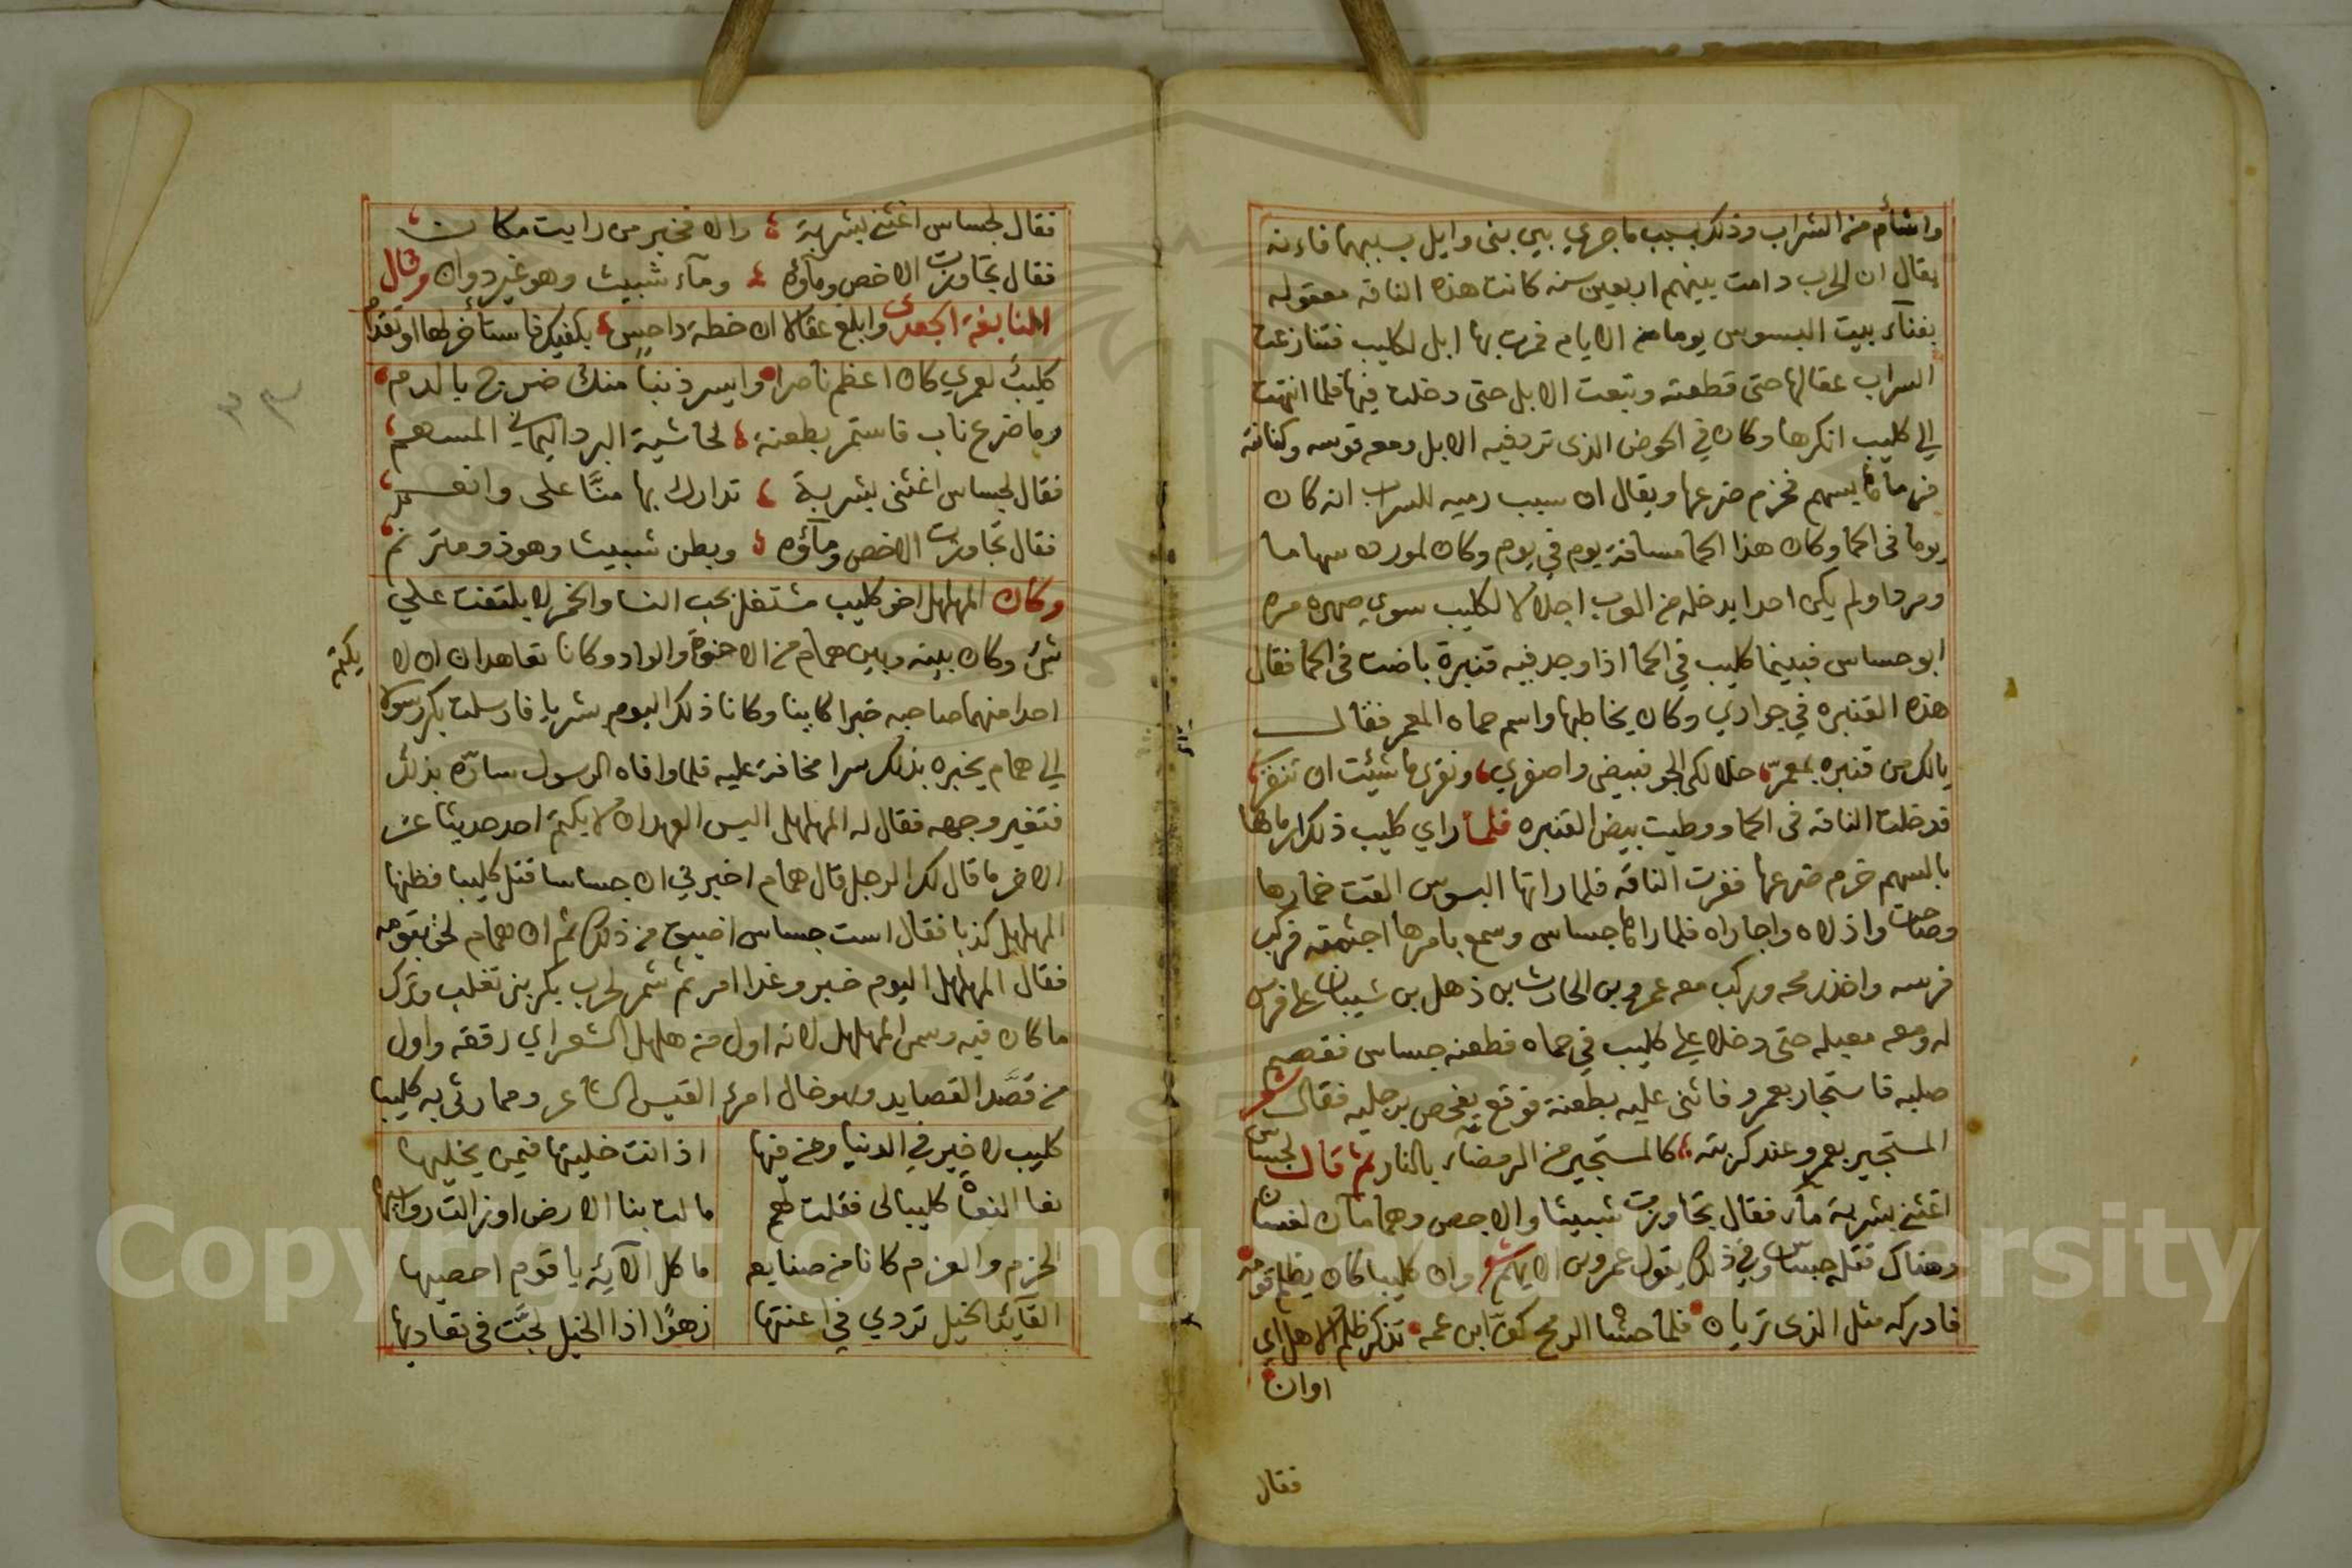 واشأم من السراب وذلك بسبب ماجري بين بنى وايل بسببهما فاءنه
يقال ان الحرب دامت بينهم اربعين سنه كانت هذه الناقه معقوله
بفنآء بيت البسوس يوما من الايام فمرت بها ابل لكليب فتنازعت
السراب عقالها حتى قطعته وتبعت الابل حتى دخلت فيها فلما انتهت
الي كليب انكرها وكان في الحوض الذى ترد فيه الابل ومعه قوسه وكنانته
فرماها بسهم فخرم ضرعها ويقال ان سبب رميه للسراب انه كان
يوما فى الحما وكان هذا الحما مسافة يوم في يوم وكان
ولم يكن احدا يدخله من العرب اجلالا لكليب سوي صهره مره
ابو جساس فبينما كليب في الحما اذا وجد فيه قنبرة باضت فى الحما فقال
هذه القنبره في جواري وكان يخاطبها واسم حماه المعمر فقال
يالك من قنبره بمعمر خلا لكى الجو فبيضى واصفري ونقرى ما شئت ان تنقرى
فدخلت الناقه فى الحما ووطيت بيض القنبره فلما راي كليب ذلك رماها
بالسهم خرم ضرعها ففرت الناقه فلما راتها البسوس القت خمارها
وصاحت واذلاه واجاراه فلما راها جساس وسمع بامرها فركب
فرسه واخذ رمحه وركب معه عمرو بن الحارث بن ذهل بن شيبان على فرس
له ومعه معبله حتى دخلا علي كليب في حماه فطعنه جساس فقصم
صلبه فاستجار بعمرو فاثنى عليه بطعنة فوقع يفحص برجليه فقال شعر
المستجير بعمرو عند كربته كالمستجير من الرمضاء بالنار ثم قال لجساس
اغثني بشربة مآء فقال تجاوزت شبيثا والاحص وهما مآان لغسان
وهناك قتله جساس وفي ذلك يقول عمرو بن الايهم شعر وان كليبا كان يظلم قومه
فادركه مثل الذى تريان فلما حشاه الرمح كف ابن عمه تذكر ظلم الاهل اي
اوان
فقال
فقال لجساس اغثني بشربة والا فخبر من رايت مكان
فقال تجاوزت الاخص ومآؤه ومآء شبيث وهو غير دوان وقال
النابغة الجعدى وابلغ عقالا ان خطة داحس بكفيك فاستأخر لها او تقدم
كليبٌ لعمري كان اعظم ناصرا وايسر ذنبا منك ضرج بالدم
رما ضرع ناب فاستمر بطعنة لحاشية البرد اليماني المسهم
فقال لجساس اغثنى بشربة تدارك بها منّا على وانعم
فقال تجاوزت الاخص ومآؤه وبطن شبيث وهو ذو مترنم
وكان المهلهل اخو كليب مشتغل بحب النسا والخمر لا يلتفت علي
شئ وكان بينه وبين همام من الاخوة والواد وكانا تعاهدان ان لا
يكتم
احدا منهما صاحبه خبرا كاينا وكانا ذلك اليوم بشربا فارسلت بكر رسولا
الي همام يخبره بذلك سرا مخافة عليه فلما وافاه الرسول سارّه بذلك
فتغير وجهه فقال له المهلهل اليس العهد ان لا يكتم احد حديثا عن
الاخر ما قال لك الرجل قال همام اخبرني ان جساسا قتل كليبا فظنها
المهلهل كذبا فقال است جساس اضيق من ذلك ثم ان همام لحق بقومه
فقال المهلهل اليوم خمر وغدا امر ثم شمر لحرب بكر بنى تغلب وترك
ما كان فيه وسمى المهلهل لانه اول من هلهل الشعر اي رققه واول
من قصَّد القصايد وهو خال امرء القيس الشاعر ومما رثى به كليبا
كليب لا خير في الدنيا ومن فيها اذ انت خليتها فيمن يخليها
نعا النعاه كليبا لى فقلت لهم مالت بنا الارض او زالت رواسيها
الحزم والعزم كانا من صنايعه ما كل آلائه يا قوم احصيها
القآئد الخيل تردي في اعنتها زهوًا اذا الخيل لجَّت فى تعاديها